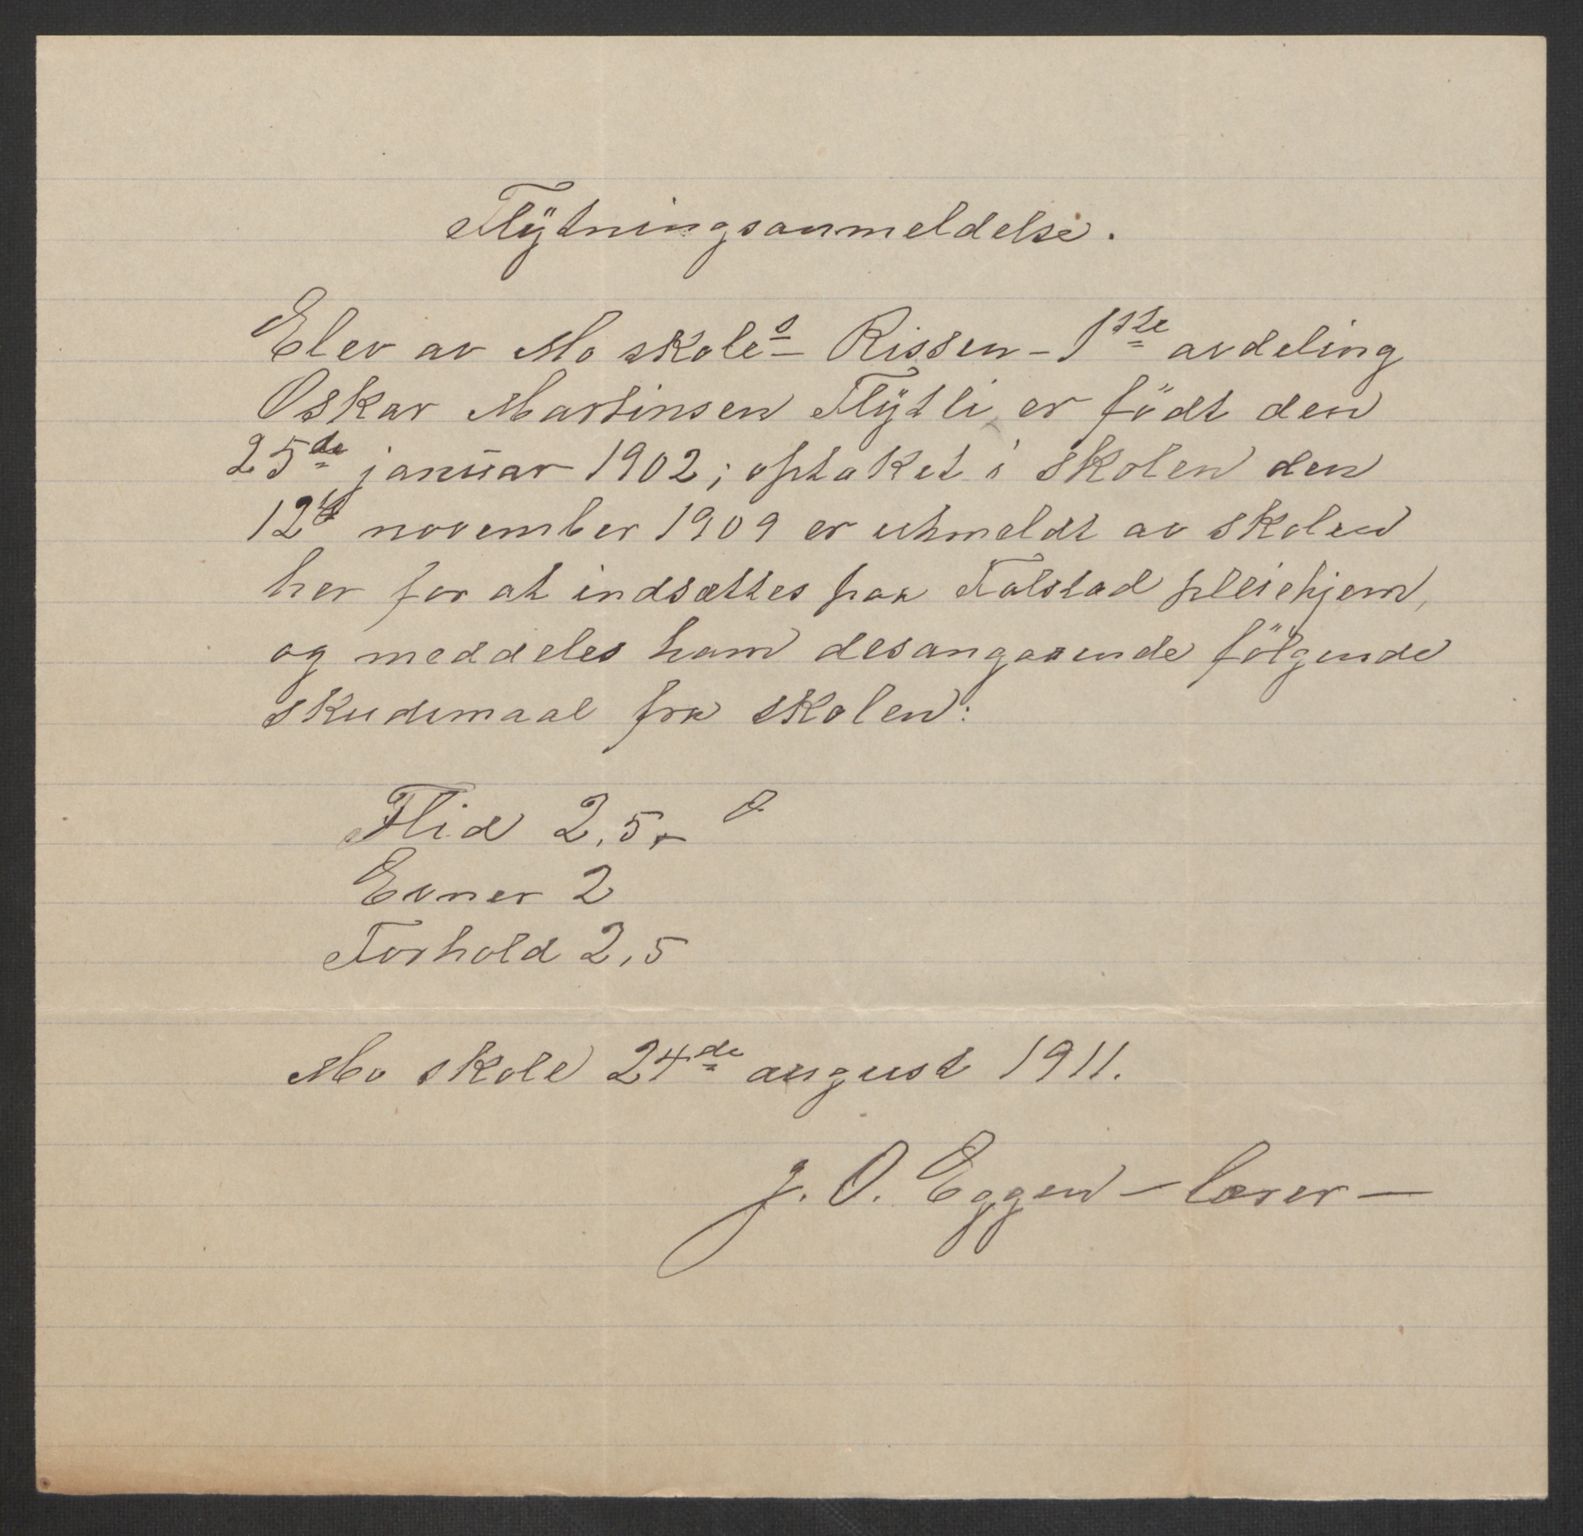 Flÿtningsanmeldelse.
Elev av Mo skoles – Rissen – 1ste avdeling
Oskar Martinsen Flÿtli er födt den
25de januar 1902; optaket i skolen den
12te november 1909 er utmeldt av skolen
her for at indsættes paa Falstad pleiehjem,
og meddeles ham desangaaende fölgende
skudsmaal fra skolen:
Flid 2,5
Evner 2
Forhold 2,5
Mo skole 24de august 1911.
J. O. Eggen – lærer –